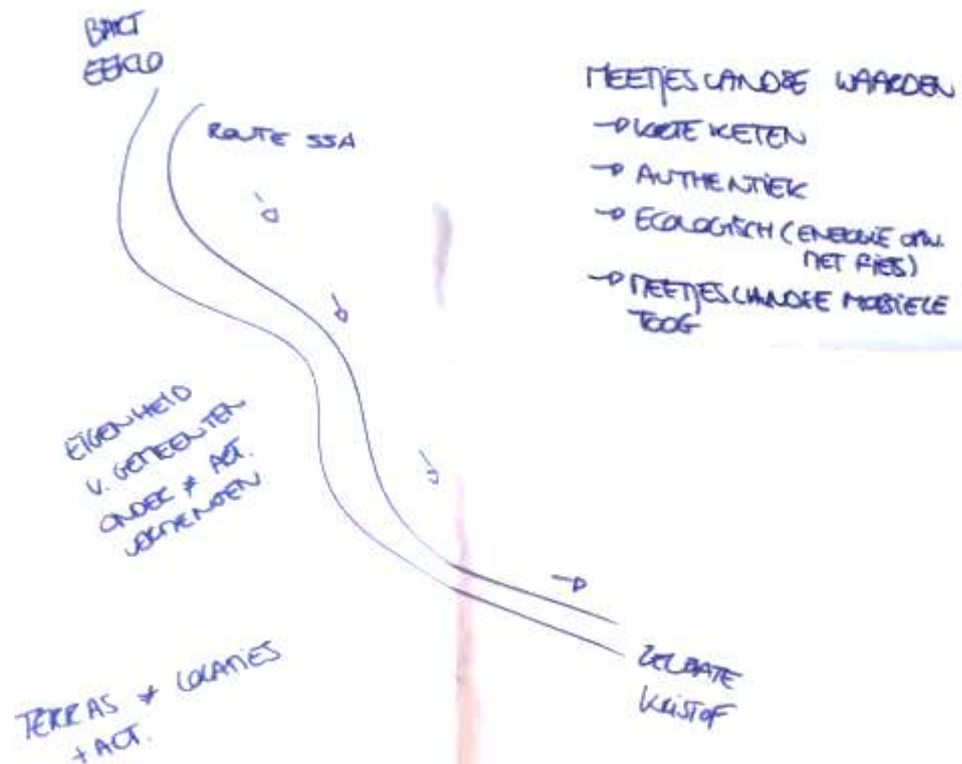 BART
EEKLO
ROUTE 55A
MEETJESLANDSE WAARDEN
→ KORTE KETEN
→ AUTHENTIEK
→ ECOLOGISCH (ENERGIE OPW.
MET FIETS)
→ MEETJESLANDSE MOBIELE
TOOG
EIGENHEID
V. GEMEENTEN
ONDER ≠ ACT.
TERRAS ≠ LOCATIES
+ ACT.
ZELZATE
KRISTOF